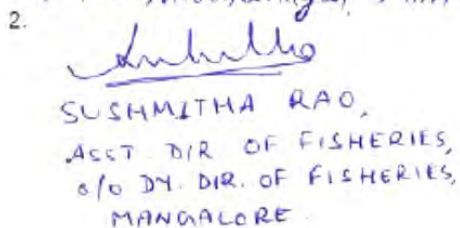 2.
SUSHMITHA RAO,
ASST DIR OF FISHERIES,
O/O DY. DIR. OF FISHERIES,
MANGALORE.